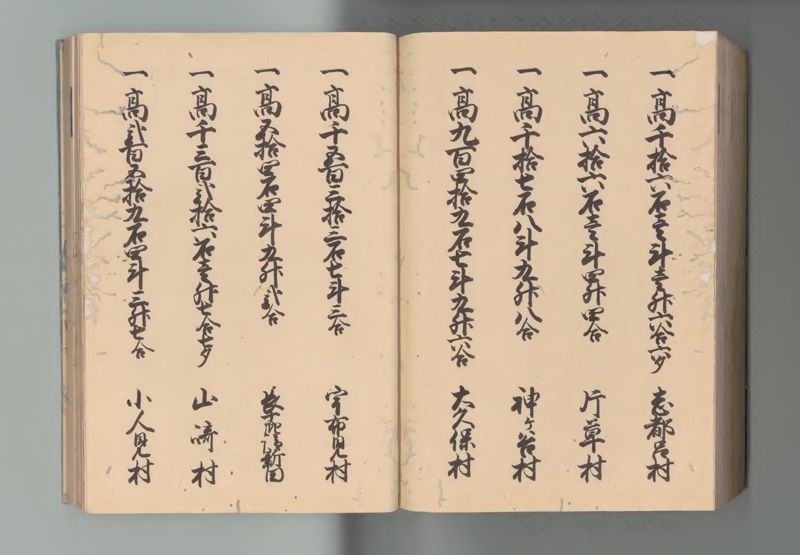 一高千拾六石壱斗壱升六合六夕 志都呂村
一高六拾六石壱斗四升四合 片草村
一高千拾七石八斗九升八合 神ヶ谷村
一高九百四拾九石七斗九升六合 大久保村
一高千五百三拾三石七斗三合 宇布見村
一高五拾四石四斗九升弐合 新田
一高千三百弐拾六石壱升七合七夕 山崎村
一高弐百五拾九石四斗三升七合 小人見村